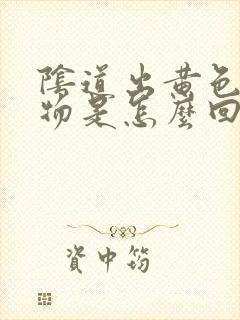 陰道出黄色
物是怎麽回
資中筠